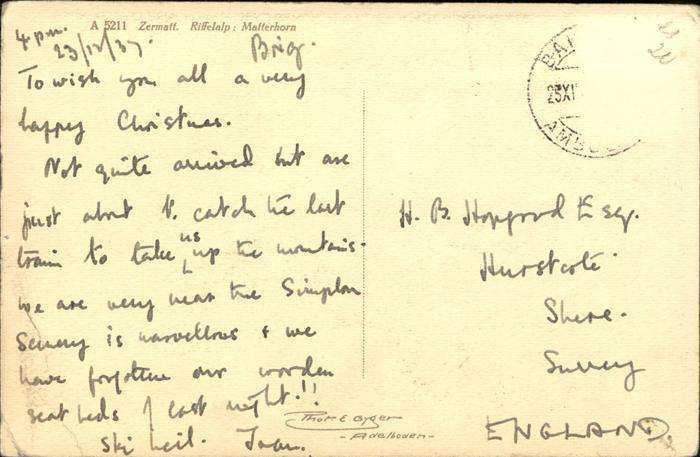 A 5211 Zermatt. Riffelalp: Matterhorn
4 pm.
23/12/37.
Brig.
To wish you all a very
happy Christmas.
Not quite arrived but are
just about to catch the last
train to take us up the mountains.
We are very near the Simplon
Scenery is marvellous & we
have forgotten our wooden
seat beds of last night.!!
Ski heil. Joan.
H. B. Hopgood Esq.
Hurstcote
Shere.
Surrey
ENGLAND
Phot E. Gyger
- Adelboden -
BA
23 XI
AMBU